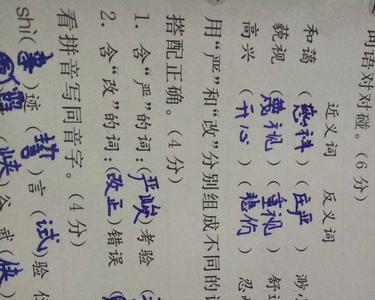 词语对对碰。(6分)
近义词 反义词
和蔼 (慈祥) (庄严) 渺
藐视 (蔑视) (重视) 舒
高兴 (开心) (悲伤) 忍
用“严”和“改”分别组成不同的
搭配正确。(4分)
1. 含“严”的词:(严峻)考验
2. 含“改”的词:(改正)错误
看拼音写同音字。(4分)
shì( )迹 (誓)言 (试)验
(峡)谷 武(侠)